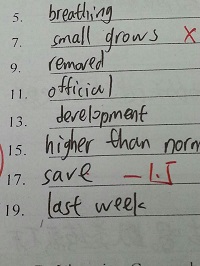 5. breathing
7. small grows ×
9. removed
11. official
13. development
15. higher than norm
17. save -1.5
19. last week